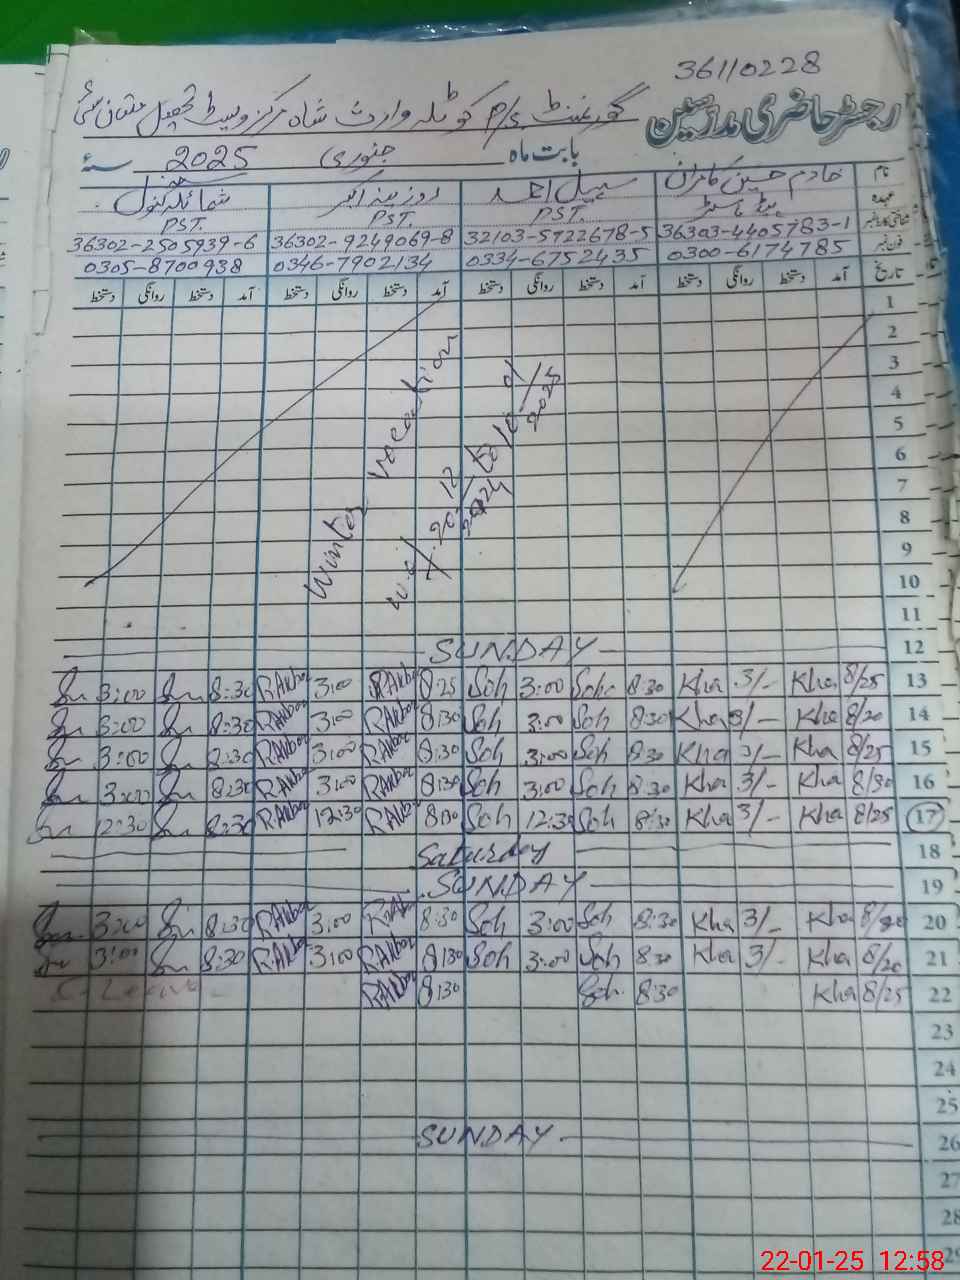 36110228
رجسٹر حاضری مدرسین
گورنمنٹ پ/م کوٹلہ وارث شاہ مرکز ویسٹ تحصیل ملتان سٹی
بابت ماہ جنوری 2025 سنۂ
نام خادم حسین کامران سہیل احمد روزینہ اکبر شمائلہ کنول
عہدہ ہیڈ ماسٹر PST. PST. PST.
شناختی کارڈ نمبر 36303-4405783-1 32103-5722678-5 36302-9249069-8 36302-2505939-6
فون نمبر 0300-6174785 0334-6752435 0346-7902134 0305-8700938
تاریخ آمد دستخط روانگی دستخط آمد دستخط روانگی دستخط آمد دستخط روانگی دستخط آمد دستخط روانگی دستخط
1
2
3
4
5
6
7
8
9
10
11
Winter Vacation
w.e.f. 20-12/2024 to
2025
SUNDAY 12
3:00 8:30 RAkbar 3:00 RAkbar 8:25 Soh 3:00 Soh 8:30 Kha 3/- Kha 8/25 13
3:00 8:30 RAkbar 3:00 RAkbar 8:30 Soh 3:00 Soh 8:30 Kha 3/- Kha 8/20 14
3:00 8:30 RAkbar 3:00 RAkbar 8:30 Soh 3:00 Soh 8:30 Kha 3/- Kha 8/25 15
3:00 8:30 RAkbar 3:00 RAkbar 8:30 Soh 3:00 Soh 8:30 Kha 3/- Kha 8/30 16
12:30 8:30 RAkbar 12:30 RAkbar 8:30 Soh 12:30 Soh 8:30 Kha 3/- Kha 8/25 17
Saturday 18
SUNDAY 19
3:00 8:30 RAkbar 3:00 RAk 8:30 Soh 3:00 Soh 8:30 Kha 3/- Kha 20
3:00 8:30 RAkbar 3:00 RAkbar 8:30 Soh 3:00 Soh 8:30 Kha 3/- Kha 8/20 21
C-Leave RAkbar 8:30 Soh 8:30 Kha 8/25 22
23
24
25
SUNDAY 26
27
28
29
22-01-25 12:58